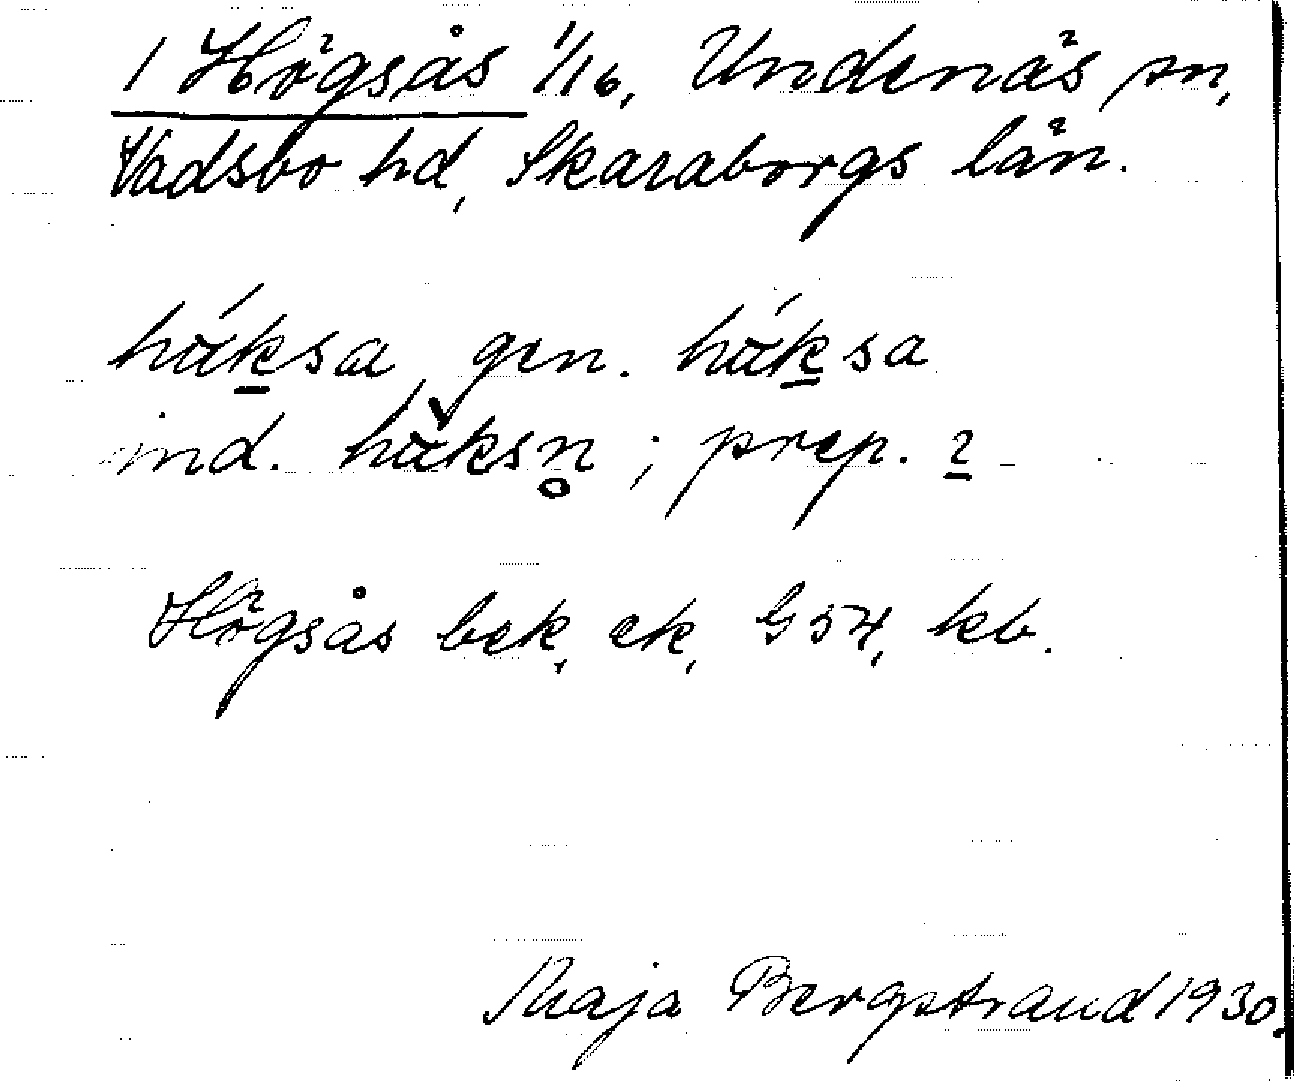 1 Högsås 1/16, Undenäs sn,
Vadsbo hd, Skaraborgs län.
håksa, gen. håksa
ind. håksn̥ ; prep. 2
Högsås bek, ek, G 54, kb.
Maja Bergstrand 1930.